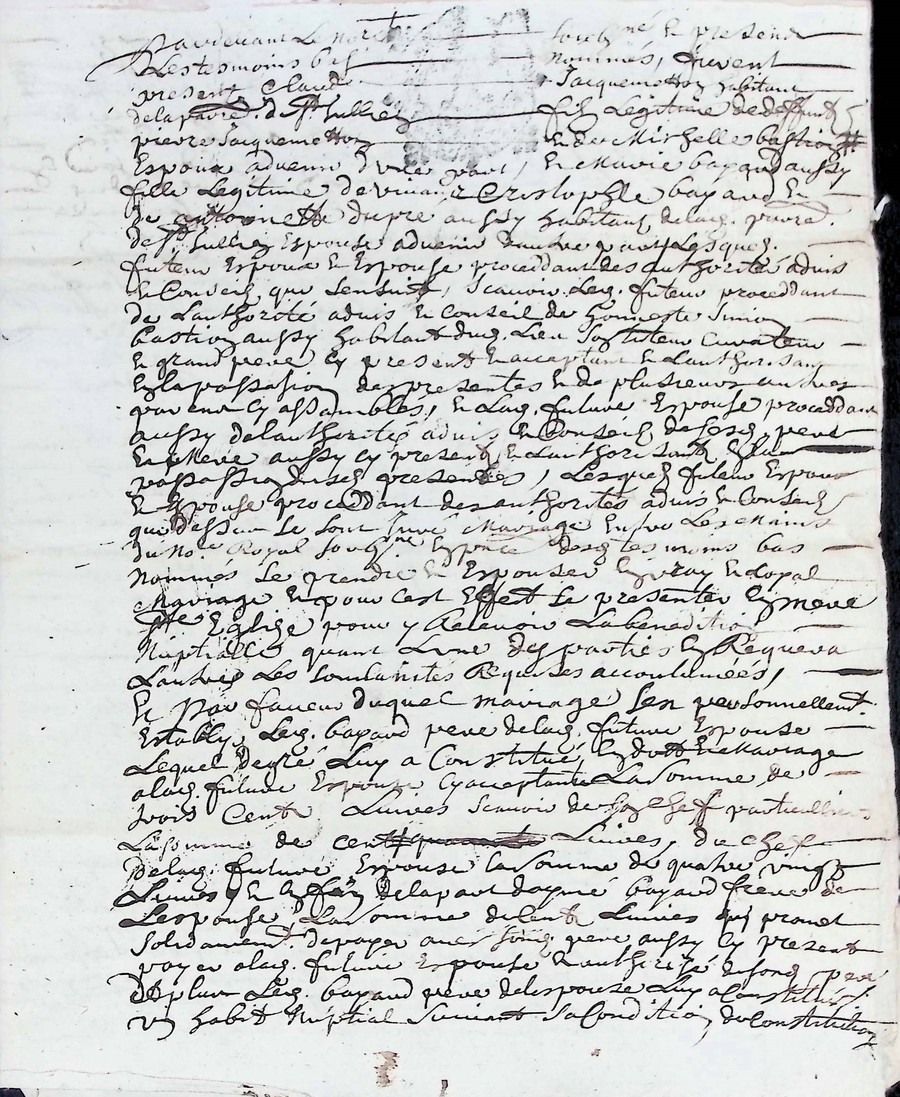 Pardevant Le not.re soub.né Et presens
Et Les tesmoins bas nommés, furent
present Claude Jacquemetton habitant
de la parre. de St. Sullien fils Legitime de deffunt
pierre Jacquemetton Et de Mischelle bastion
Espoux advenir d'une part, Et Marie bayard aussy
fille Legitime de Cristophle bayard Et
de antoinette dupre aussy habitans de lad. parre.
de St. Sullien Espouse advenir d'autre part Lesques.
futeur Espoux Et Espouse proceddant des authorité advis
Et Conseil que sensuit, scavoir Led. futeur proceddant
de Lauthorité advis Et Conseil de honneste Simon
bastion aussy habitant dud. Lieu Son tuteur Curateur
Et grand pere Cy present Et acceptant Et L'authorisant
En la passation des presentes Et de plusieurs autres
parens Cy assamblés, Et Lad. future Espouse proceddant
aussy de Lauthorité advis Et Conseil de sesd. pere
Et Mere aussy Cy presens Et Lauthorisants En la
passation desd. presentes, Lesquels futeur Espoux
Et Espouse proceddant des authorités advis Et Conseil
que dessus Se sont Juré Mariage Entre Les Mains
du No.re Royal soub.né En pnce. desd. tesmoins bas
nommés Se prendre Et Espouser En vray Et Loyal
Mariage Et pour cest Effect Se presenter En Mere
Ste. Eglise pour y Recevoir La benedition
Nuptialle quant L'une des parties En Requera
L'autre Les Soulanités Requises accoutumées,
Et Par faveur duquel mariage S'en personnellemt.
Estably Led. bayard pere de lad. future Espouse
Lequel de gré Luy a Constitué En dott Et Mariage
a lad. future Espouse Cy acceptante La Somme de
trois Cents Livres scavoir de Son Cheff particullier
La Somme de cent Livres, du Cheff
de lad. future Espouse la Somme de quatre vingt
Livres Et En fin de la part d'aymé bayard frere de
L'espouse La Somme de Cent Livres qui promet
Solidairement de payer avec Sond. pere aussy Cy present
payer a lad. future Espouse Et authorizé de sond. pere
Et plus Led. bayard pere de lespouse Luy a Constitué
un habit Nuptial Suivant Sa Condition, du constitution